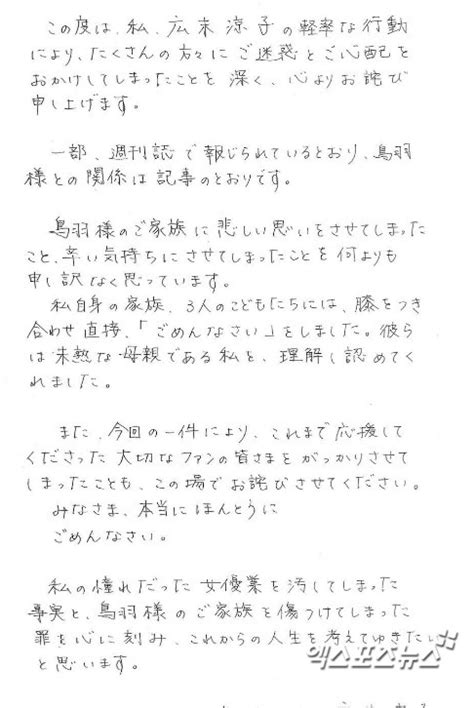 この度は、私、広末涼子の軽率な行動
により、たくさんの方々にご迷惑とご心配を
おかけしてしまったことを深く、心よりお詫び
申し上げます。
一部、週刊誌で報じられているとおり、鳥羽
様との関係は記事のとおりです。
鳥羽様のご家族に悲しい思いをさせてしまった
こと、辛い気持ちにさせてしまったことを何よりも
申し訳なく思っています。
私自身の家族、3人のこどもたちには、膝をつき
合わせ直接、「ごめんなさい」をしました。彼ら
は未熟な母親である私を、理解し認めてく
れました。
また、今回の一件により、これまで応援して
くださった大切なファンの皆さまをがっかりさせて
しまったことも、この場でお詫びさせてください。
みなさま、本当にほんとうに
ごめんなさい。
私の憧れだった女優業を汚してしまった
事実と、鳥羽様のご家族を傷つけてしまった
罪を心に刻み、これからの人生を考えてゆきたい
と思います。
엑스포츠뉴스